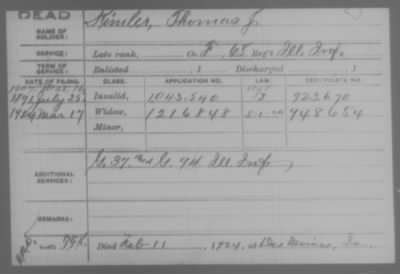 DEAD
NAME OF SOLDIER: Kinsler, Thomas J.
SERVICE: Late rank, Co. F, 68 Reg't Ill. Inf.
TERM OF SERVICE: Enlisted , 1 Discharged , 1
DATE OF FILING. CLASS. APPLICATION NO. LAW. CERTIFICATE NO.
1891 July 25 Invalid, 1043.540 923.670
Mar 17 Widow, 1216848 948654
Minor,
ADDITIONAL SERVICES: G. 37. and G. 74. Ill. Inf
REMARKS:
Died Feb 11, 1924, at Des Moines, Ia.